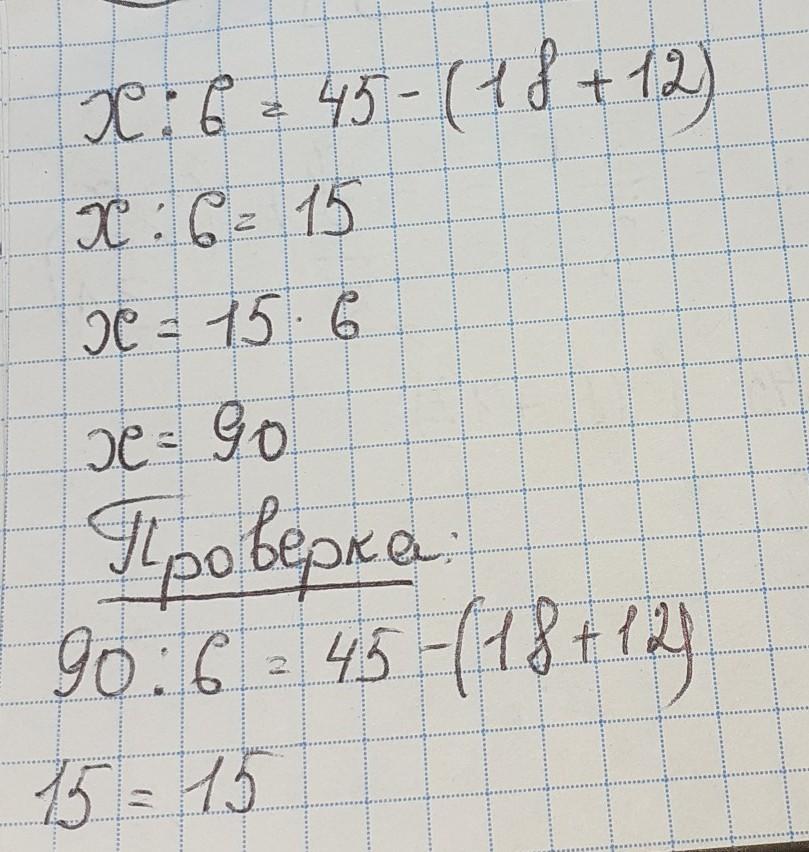 x : 6 = 45 - (18 + 12)
x : 6 = 15
x = 15 · 6
x = 90
Проверка:
90 : 6 = 45 - (18 + 12)
15 = 15